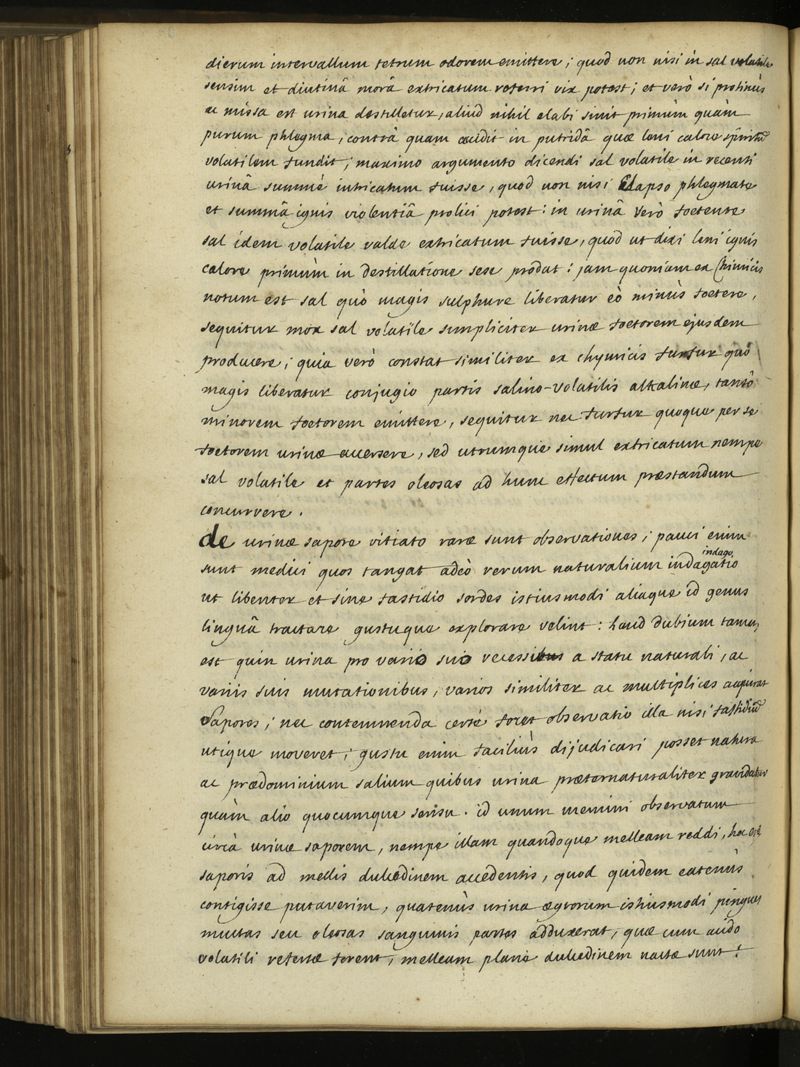 dierum intervallum tetrum odorem emittere; quod non nisi in sal volatile
sensim et diutinâ morâ extricatum referri vix potest; et verò si protinùs
ac missa est urina destilletur, aliud nihil elabi sinit primùm quàm
purum phlegma, contrà quam accidit in putridâ quæ leni calore spiritum
volatilem fundit; maximo argumento dicendi sal volatile in recenti
urinâ summè intricatum fuisse, quod non nisi Elapso phlegmate
et summâ ignis violentiâ prolici potest: in urinâ verò foetente
sal idem volatile valde extricatum fuisse, quod ut dixi leni ignis
calore primùm in destillatione sese prodat: jam quoniam ex Chimicis
notum est sal quò magis sulphure liberatur eò minùs foetere,
sequitur mox sal volatile simpliciter urinæ foetorem ejusdem
producere; quia verò constat similiter ex chymicis furfur quò
magis liberatur conjugio partis salino-volatilis alkalinæ, tantò
minorem foetorem emittere, sequitur nec furfur quoque per se
foetorem urinæ accersere, sed utrumque simul extricatum nempe
sal volatile et partes oleosas ad hunc effectum præstandum
concurrere.
de urinæ sapore vitiato raræ sunt observationes; pauci enim
sunt medici quos tangat adeò rerum naturalium indagatio
indago
ut libenter et sine fastidio sordes istiusmodi aliaque id genus
linguâ tractare gustuque explorare velint: haud dubium tamen
est quin urina pro vario suo recessibus a statu naturali, ac
variis suis mutationibus, varios similiter ac multiplices acquirat
Sapores; nec contemnenda certè foret observatio illa nisi fastidium
utique moveret; gustu enim faciliùs dijudicari posset natura
ac prædominium salium quibus urina præternaturaliter gravidatur
quàm alio quocumque sensu. id unum memini observatum
circà urinæ saporem, nempe illam quandoque melleam reddi, hoc est
saporis ad mellis dulcedinem accedentis, quod quidem eatenùs
contigisse putaverim, quatenùs urina ægrorum ishiusmodi pingues
multas seu oleosas sanguinis partes adduxerat, quæ cum acido
volatili refertæ forent, melleam planè dulcedinem nactæ sunt: